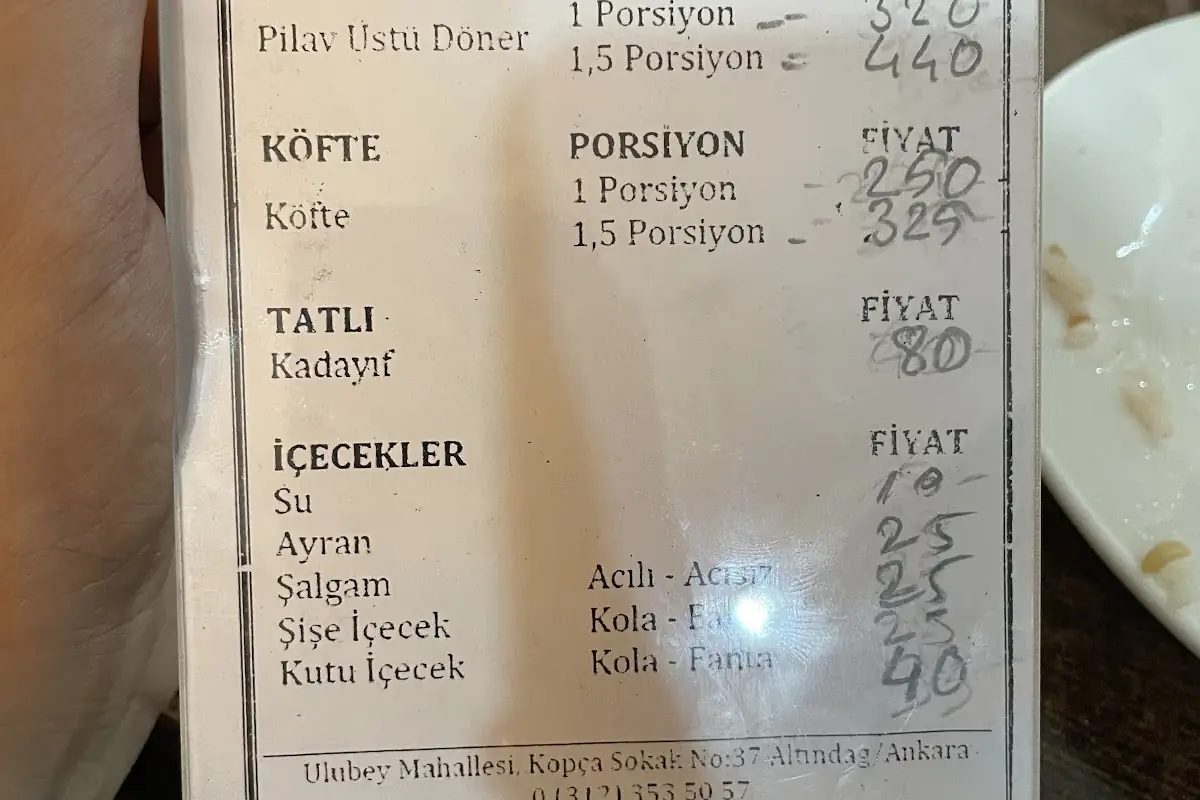 1 Porsiyon -- 320
Pilav Üstü Döner
1,5 Porsiyon = 440
KÖFTE PORSİYON FİYAT
1 Porsiyon - 250
Köfte
1,5 Porsiyon - 325
TATLI FİYAT
Kadayıf 80
İÇECEKLER FİYAT
Su 10
Ayran 25
Şalgam Acılı - Acısız 25
Şişe İçecek Kola -
Kutu İçecek Kola - Fanta 40
Ulubey Mahallesi, Kopça Sokak No:37 Altındağ/Ankara
0 (312) 353 50 57